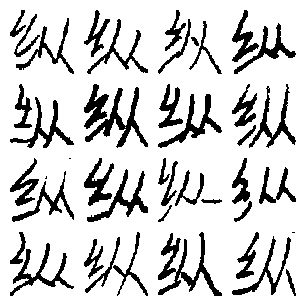 纵纵纵纵
纵纵纵纵
纵纵纵纵
纵纵纵纵